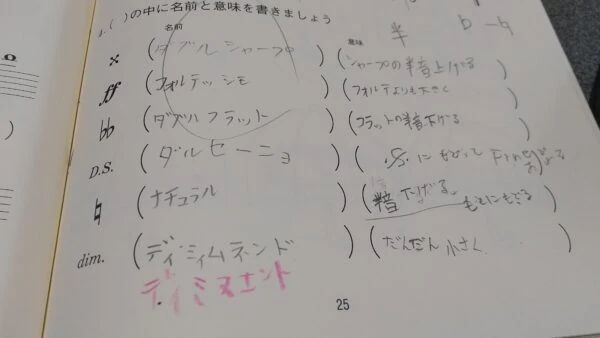 1. ( ) の中に名前と意味を書きましょう
半 b - ♮
名前 意味
𝄪 (ダブルシャープ) (シャープの半音上げる)
ff (フォルテッシモ) (フォルテよりも大きく)
♭♭ (ダブルフラット) (フラットの半音下げる)
D.S. (ダルセーニョ) (.S. にもどって Fineで
♮ (ナチュラル) (半音下げる。もとにもどる)
dim. (ディミィムネンド) (だんだん小さく)
ディミヌエンド
25